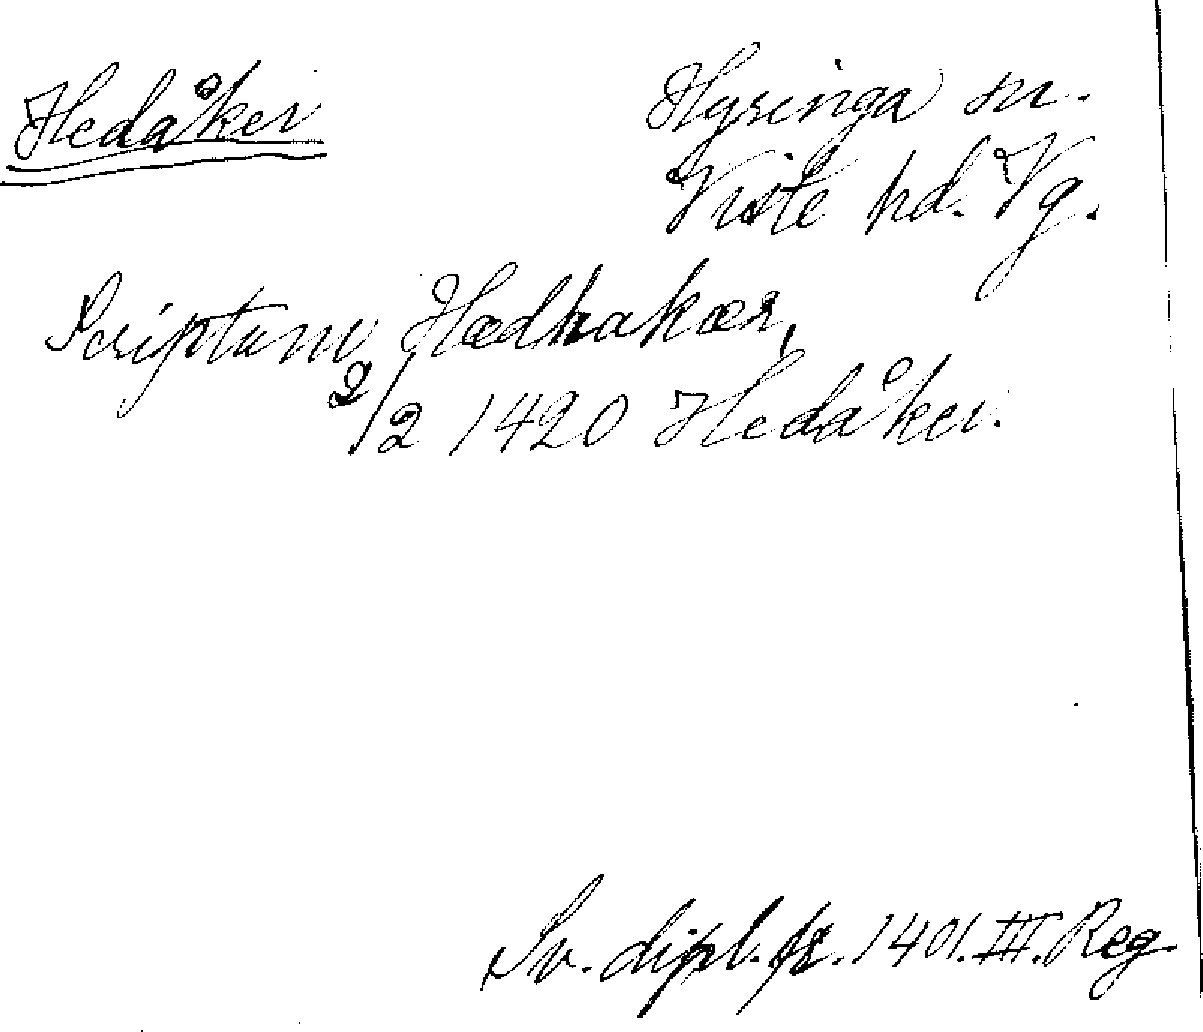 Hedåker
Hyringa sn.
Viste hd. Vg.
Scriptum Hædhakær,
2/2 1420 Hedåker.
Sv. dipl. fr. 1401. III. Reg.